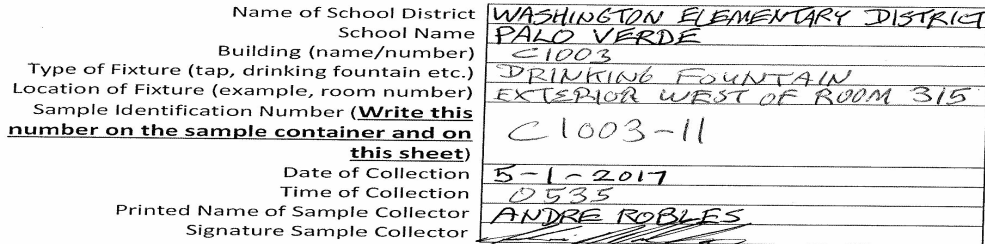 Name of School District WASHINGTON ELEMENTARY DISTRICT
School Name PALO VERDE
Building (name/number) C1003
Type of Fixture (tap, drinking fountain etc.) DRINKING FOUNTAIN
Location of Fixture (example, room number) EXTERIOR WEST OF ROOM 315
Sample Identification Number (Write this
number on the sample container and on
this sheet) C1003-11
Date of Collection 5-1-2017
Time of Collection 0535
Printed Name of Sample Collector ANDRE ROBLES
Signature Sample Collector